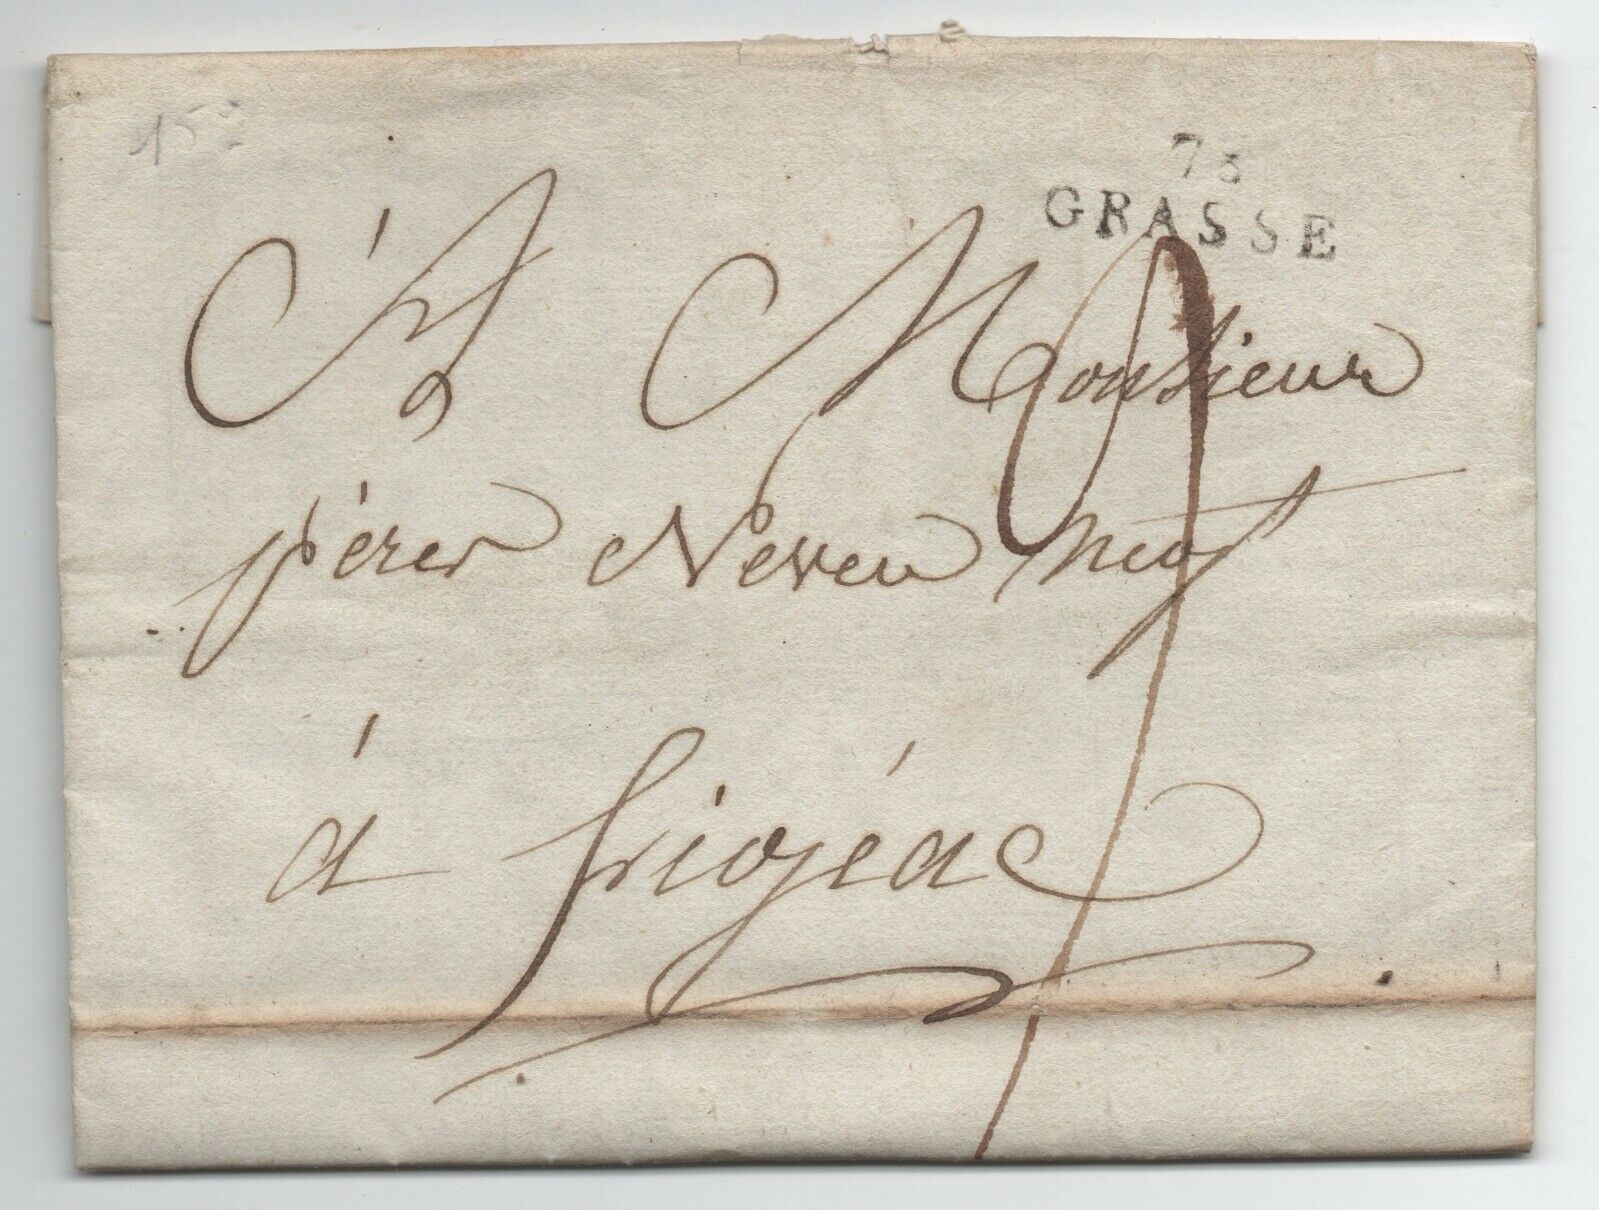 15
78
GRASSE
À Monsieur
pérès Neveu neg
à figéac